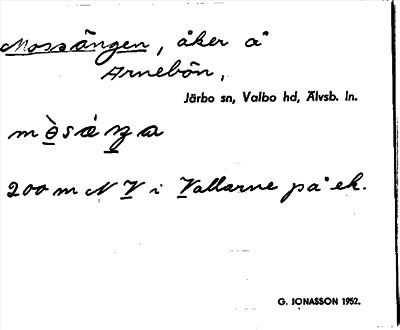 Mossängen, åker å
Arnebön,
Järbo sn, Valbo hd, Älvsb. ln.
m
200 m N V i Vallarne på ek.
G. JONASSON 1952.